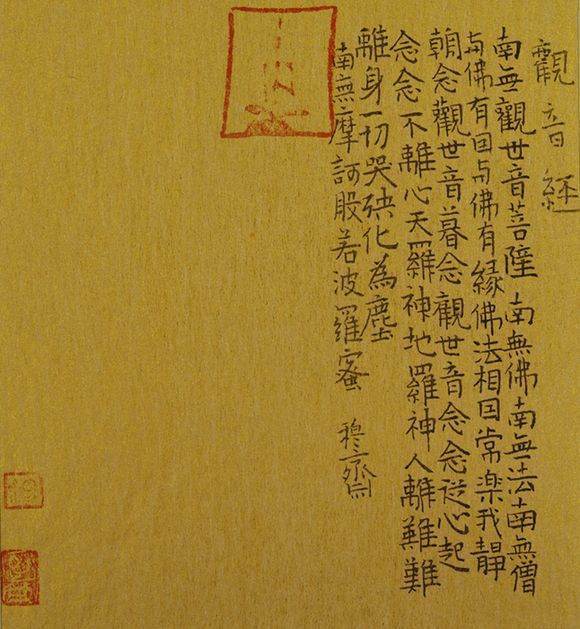 觀音経
南無觀世音菩薩 南無佛南無法南無僧
与佛有因与佛有緣佛法相因常楽我靜
朝念觀世音暮念觀世音念念從心起
念念不離心天羅神地羅神人離難難
離身一切哭殃化為塵
南無摩訶般若波羅蜜 穆齋